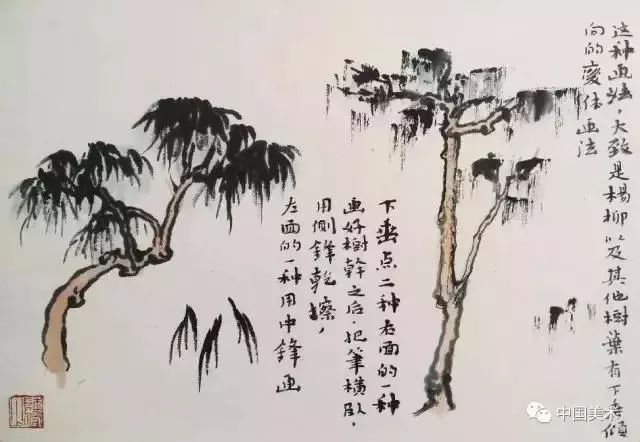 这种画法，大致是楊柳以及其他樹葉有下垂傾
向的変体画法
下垂点二种右面的一种
画好樹幹之后，把筆横卧，
用側鋒乾擦，
左面的一种用中鋒画
中国美术